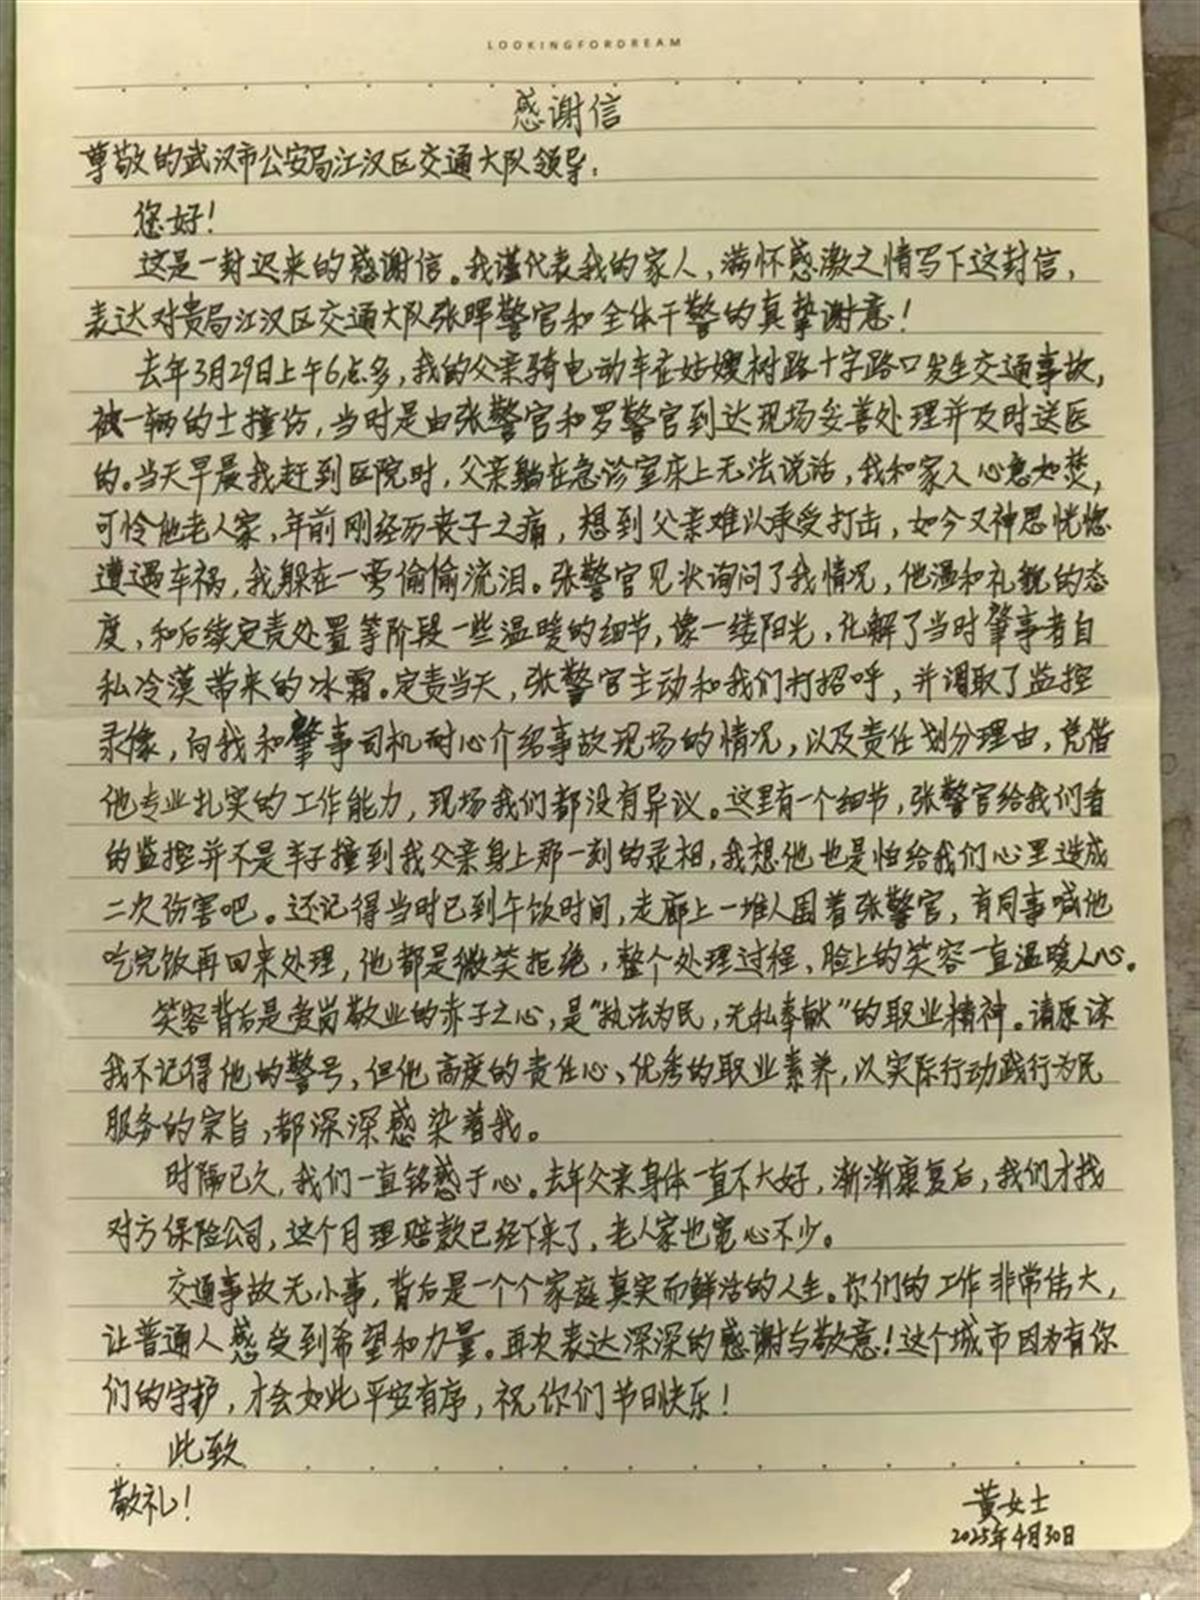 LOOKINGFORDREAM
感谢信
尊敬的武汉市公安局江汉区交通大队领导:
您好!
这是一封迟来的感谢信。我谨代表我的家人,满怀感激之情写下这封信,
表达对贵局江汉区交通大队张晖警官和全体干警的真挚谢意!
去年3月29日上午6点多,我的父亲骑电动车在姑嫂树路十字路口发生交通事故,
被一辆的士撞伤,当时是由张警官和罗警官到达现场妥善处理并及时送医
的。当天早晨我赶到医院时,父亲躺在急诊室床上无法说话,我和家人心急如焚,
可怜他老人家,年前刚经历丧子之痛,想到父亲难以承受打击,如今又神思恍惚
遭遇车祸,我躲在一旁偷偷流泪。张警官见状询问了我情况,他温和礼貌的态
度,和后续定责处置等阶段一些温暖的细节,像一缕阳光,化解了当时肇事者自
私冷漠带来的冰霜。定责当天,张警官主动和我们打招呼,并调取了监控
录像,向我和肇事司机耐心介绍事故现场的情况,以及责任划分理由,凭借
他专业扎实的工作能力,现场我们都没有异议。这里有一个细节,张警官给我们看
的监控并不是车子撞到我父亲身上那一刻的录相,我想他也是怕给我们心里造成
二次伤害吧。还记得当时已到午饮时间,走廊上一堆人围着张警官,有同事喊他
吃完饭再回来处理,他都是微笑拒绝,整个处理过程,脸上的笑容一直温暖人心。
笑容背后是爱岗敬业的赤子之心,是"执法为民,无私奉献"的职业精神。请原谅
我不记得他的警号,但他高度的责任心、优秀的职业素养,以实际行动践行为民
服务的宗旨,都深深感染着我。
时隔已久,我们一直铭感于心。去年父亲身体一直不大好,渐渐康复后,我们才找
对方保险公司,这个月理赔款已经下来了,老人家也宽心不少。
交通事故无小事,背后是一个个家庭真实而鲜活的人生。你们的工作非常伟大,
让普通人感受到希望和力量。再次表达深深的感谢与敬意!这个城市因为有你
们的守护,才会如此平安有序,祝你们节日快乐!
此致
敬礼!
黄女士
2025年4月30日